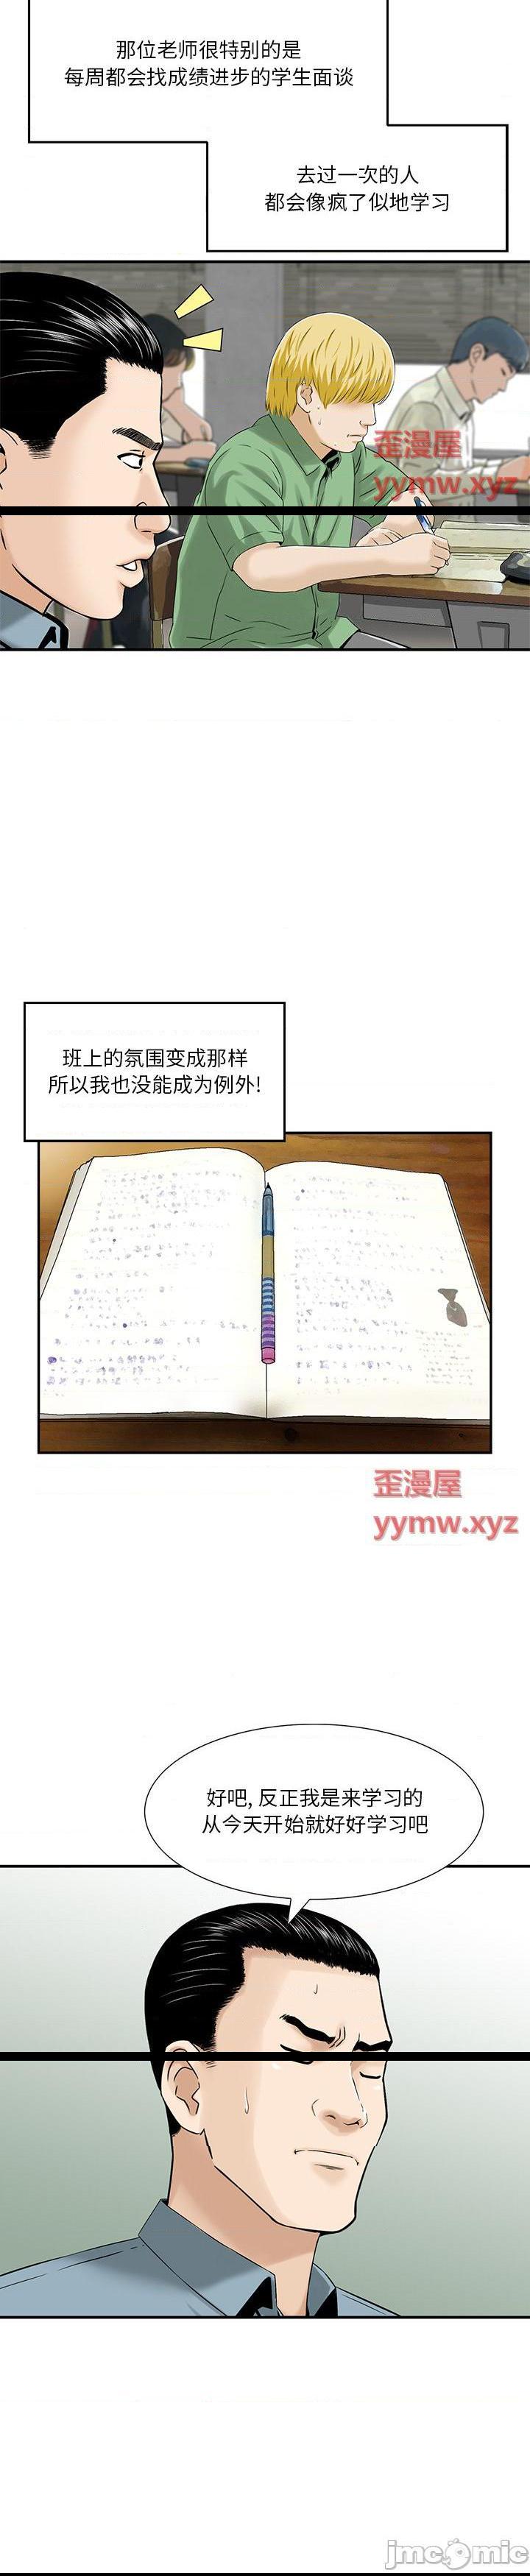 那位老师很特别的是
每周都会找成绩进步的学生面谈
去过一次的人
都会像疯了似地学习
歪漫屋
yymw.xyz
班上的氛围变成那样
所以我也没能成为例外!
歪漫屋
yymw.xyz
好吧, 反正我是来学习的
从今天开始就好好学习吧
jmcomic